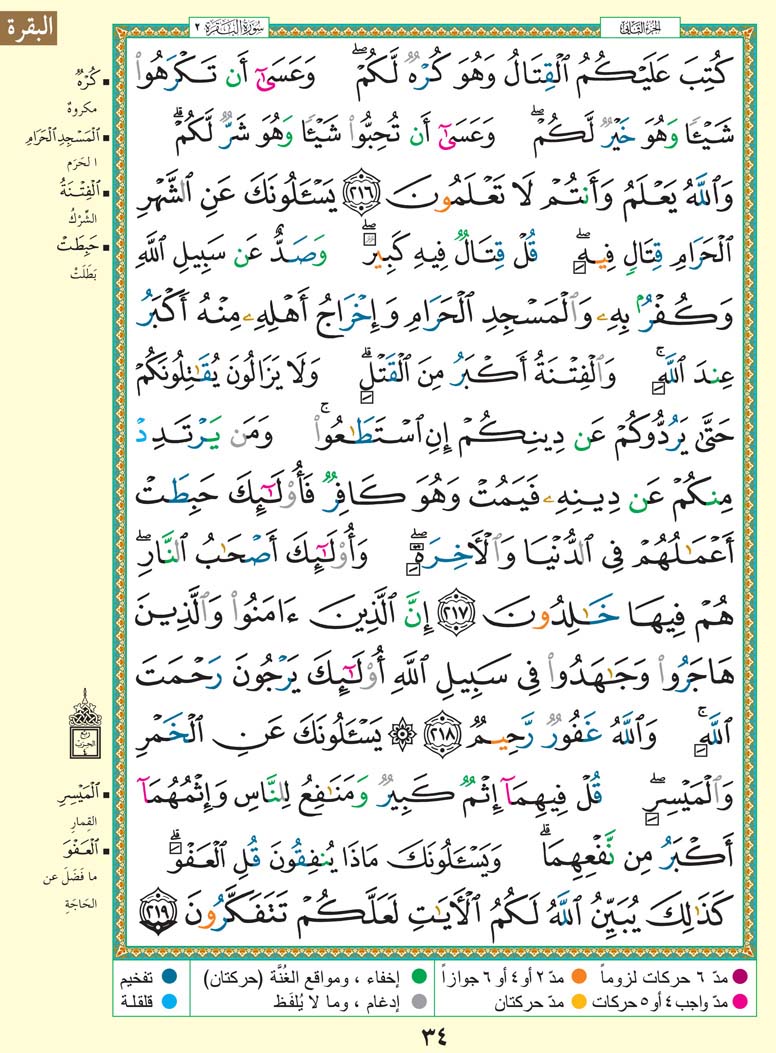 البقرة
الجزء الثاني
سورة البقرة ٢
كُتِبَ عَلَيْكُمُ ٱلْقِتَالُ وَهُوَ كُرْهٌ لَّكُمْ ۖ وَعَسَىٰٓ أَن تَكْرَهُوا۟
شَيْـًٔا وَهُوَ خَيْرٌ لَّكُمْ ۖ وَعَسَىٰٓ أَن تُحِبُّوا۟ شَيْـًٔا وَهُوَ شَرٌّ لَّكُمْ ۗ
وَٱللَّهُ يَعْلَمُ وَأَنتُمْ لَا تَعْلَمُونَ ٢١٦ يَسْـَٔلُونَكَ عَنِ ٱلشَّهْرِ
ٱلْحَرَامِ قِتَالٍ فِيهِ ۖ قُلْ قِتَالٌ فِيهِ كَبِيرٌ ۖ وَصَدٌّ عَن سَبِيلِ ٱللَّهِ
وَكُفْرٌۢ بِهِۦ وَٱلْمَسْجِدِ ٱلْحَرَامِ وَإِخْرَاجُ أَهْلِهِۦ مِنْهُ أَكْبَرُ
عِندَ ٱللَّهِ ۚ وَٱلْفِتْنَةُ أَكْبَرُ مِنَ ٱلْقَتْلِ ۗ وَلَا يَزَالُونَ يُقَـٰتِلُونَكُمْ
حَتَّىٰ يَرُدُّوكُمْ عَن دِينِكُمْ إِنِ ٱسْتَطَـٰعُوا۟ ۚ وَمَن يَرْتَدِدْ
مِنكُمْ عَن دِينِهِۦ فَيَمُتْ وَهُوَ كَافِرٌ فَأُو۟لَـٰٓئِكَ حَبِطَتْ
أَعْمَـٰلُهُمْ فِى ٱلدُّنْيَا وَٱلْـَٔاخِرَةِ ۖ وَأُو۟لَـٰٓئِكَ أَصْحَـٰبُ ٱلنَّارِ ۖ
هُمْ فِيهَا خَـٰلِدُونَ ٢١٧ إِنَّ ٱلَّذِينَ ءَامَنُوا۟ وَٱلَّذِينَ
هَاجَرُوا۟ وَجَـٰهَدُوا۟ فِى سَبِيلِ ٱللَّهِ أُو۟لَـٰٓئِكَ يَرْجُونَ رَحْمَتَ
ٱللَّهِ ۚ وَٱللَّهُ غَفُورٌ رَّحِيمٌ ٢١٨ ۞ يَسْـَٔلُونَكَ عَنِ ٱلْخَمْرِ
وَٱلْمَيْسِرِ ۖ قُلْ فِيهِمَآ إِثْمٌ كَبِيرٌ وَمَنَـٰفِعُ لِلنَّاسِ وَإِثْمُهُمَآ
أَكْبَرُ مِن نَّفْعِهِمَا ۗ وَيَسْـَٔلُونَكَ مَاذَا يُنفِقُونَ قُلِ ٱلْعَفْوَ ۗ
كَذَٰلِكَ يُبَيِّنُ ٱللَّهُ لَكُمُ ٱلْـَٔايَـٰتِ لَعَلَّكُمْ تَتَفَكَّرُونَ ٢١٩
▪ كُرْهٌ
مكروهٌ
▪ ٱلْمَسْجِدِ ٱلْحَرَامِ
الحَرَم
▪ ٱلْفِتْنَةُ
الشِّرْكُ
▪ حَبِطَتْ
بَطَلَتْ
ربع
الحزب
٤
▪ ٱلْمَيْسِرِ
القِمارِ
▪ ٱلْعَفْوَ
ما فَضَلَ عن
الحَاجَةِ
● مدّ ٦ حركات لزوماً ● مدّ ٢ أو ٤ أو ٦ جوازاً
● مدّ واجب ٤ أو ٥ حركات ● مدّ حركتان
● إخفاء ، ومواقع الغُنَّة (حركتان)
● إدغام ، وما لا يُلفَظ
● تفخيم
● قلقلة
٣٤